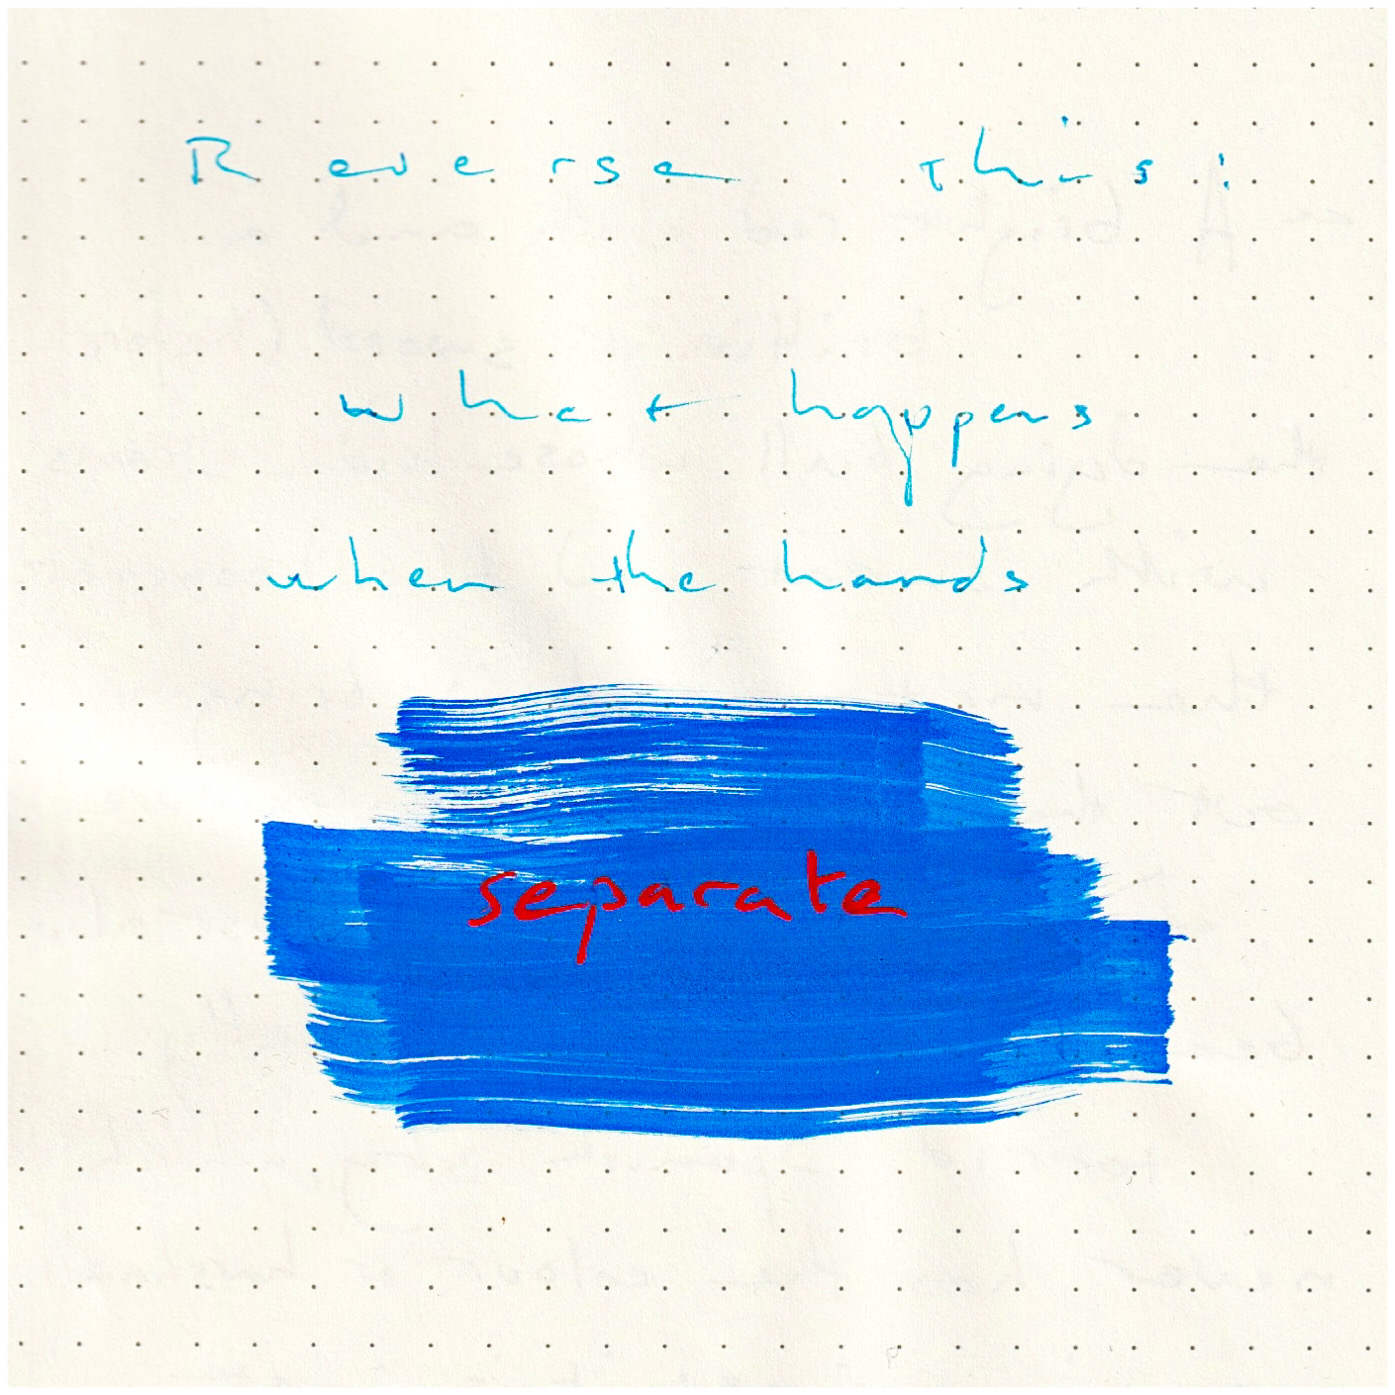 Reverse this:
what happens
when the hands
separate